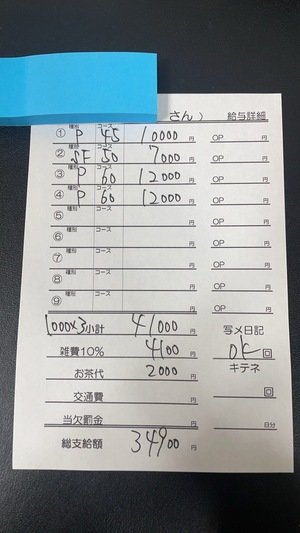 さん) 給与詳細
① 種別 P コース 45 10000 円 OP 円
② 種別 SE コース 50 7000 円 OP 円
③ 種別 P コース 60 12000 円 OP 円
④ 種別 P コース 60 12000 円 OP 円
⑤ 種別 コース 円 OP 円
⑥ 種別 コース 円 OP 円
⑦ 種別 コース 円 OP 円
⑧ 種別 コース 円 OP 円
⑨ 種別 コース 円 OP 円
1000×3 小計 41000 円 写メ日記
雑費10% 4100 円 OK 回
お茶代 2000 円 キテネ
交通費 円 回
当欠罰金 円 日分
総支給額 34900 円